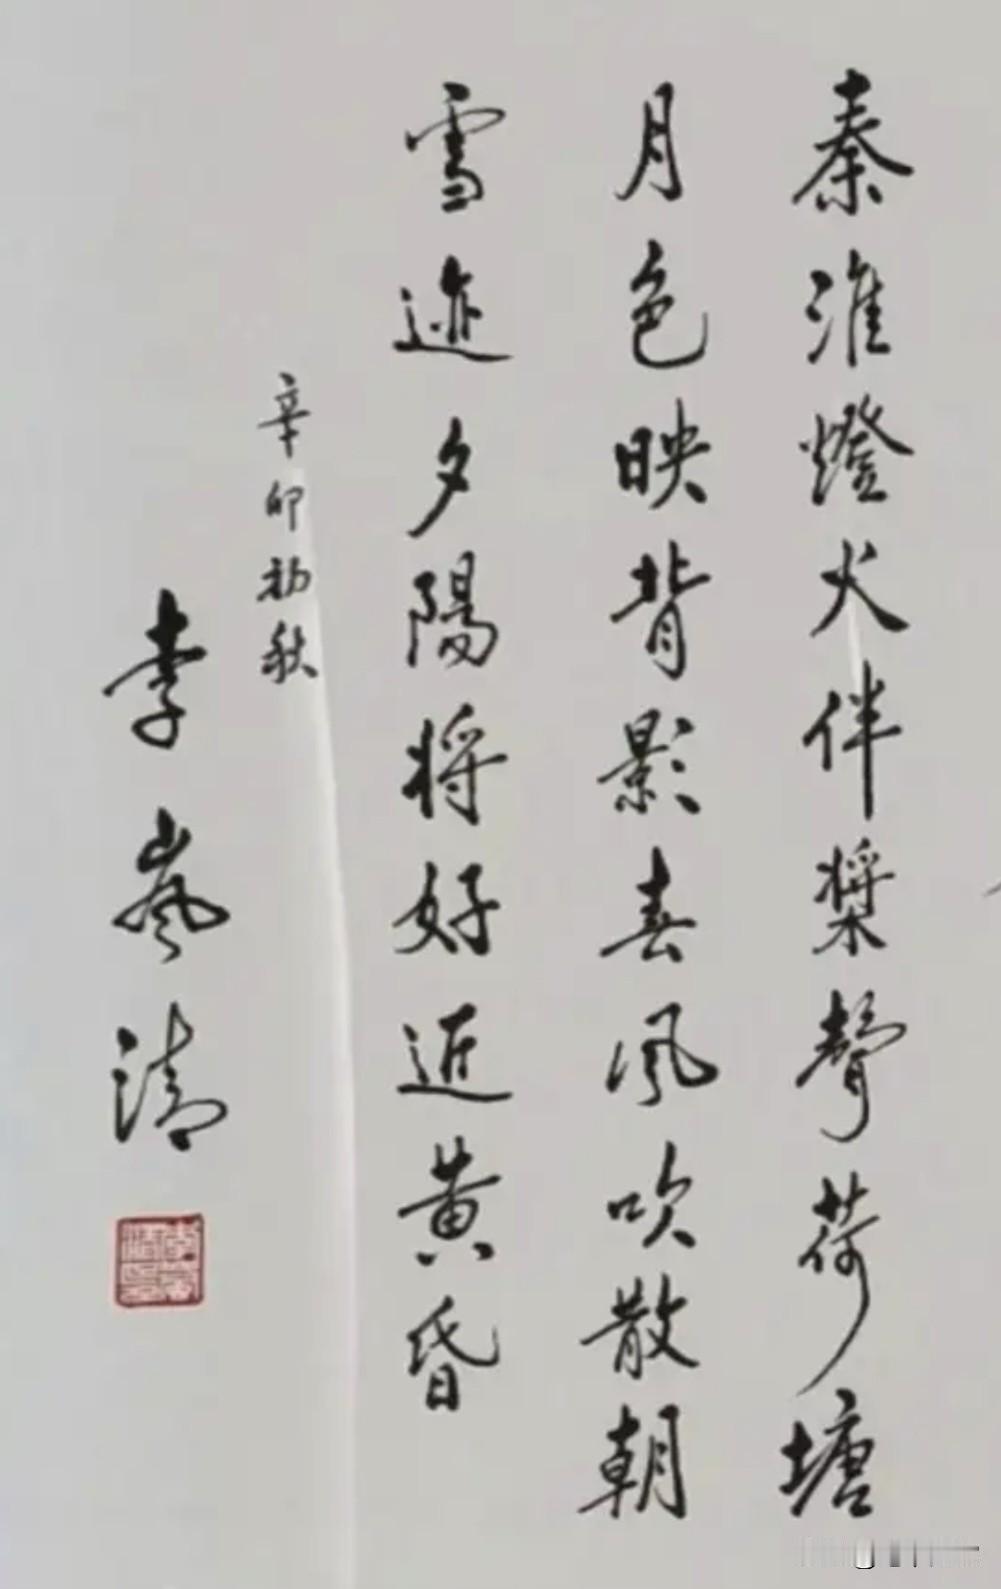 秦淮燈火伴槳聲荷塘
月色映背影春风吹散朝
雪迹夕陽将好近黄昏
辛卯初秋
李嵐清